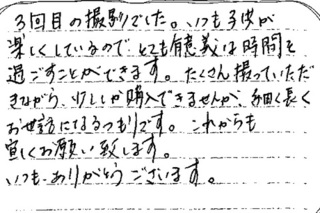 3回目の撮影でした。いつも子供が
楽しくしているので、とても有意義な時間を
過ごすことができます。たくさん撮っていただ
きながら、少ししか購入できませんが、細く長く
お世話になるつもりです。これからも
宜しくお願い致します。
いつも、ありがとうございます。